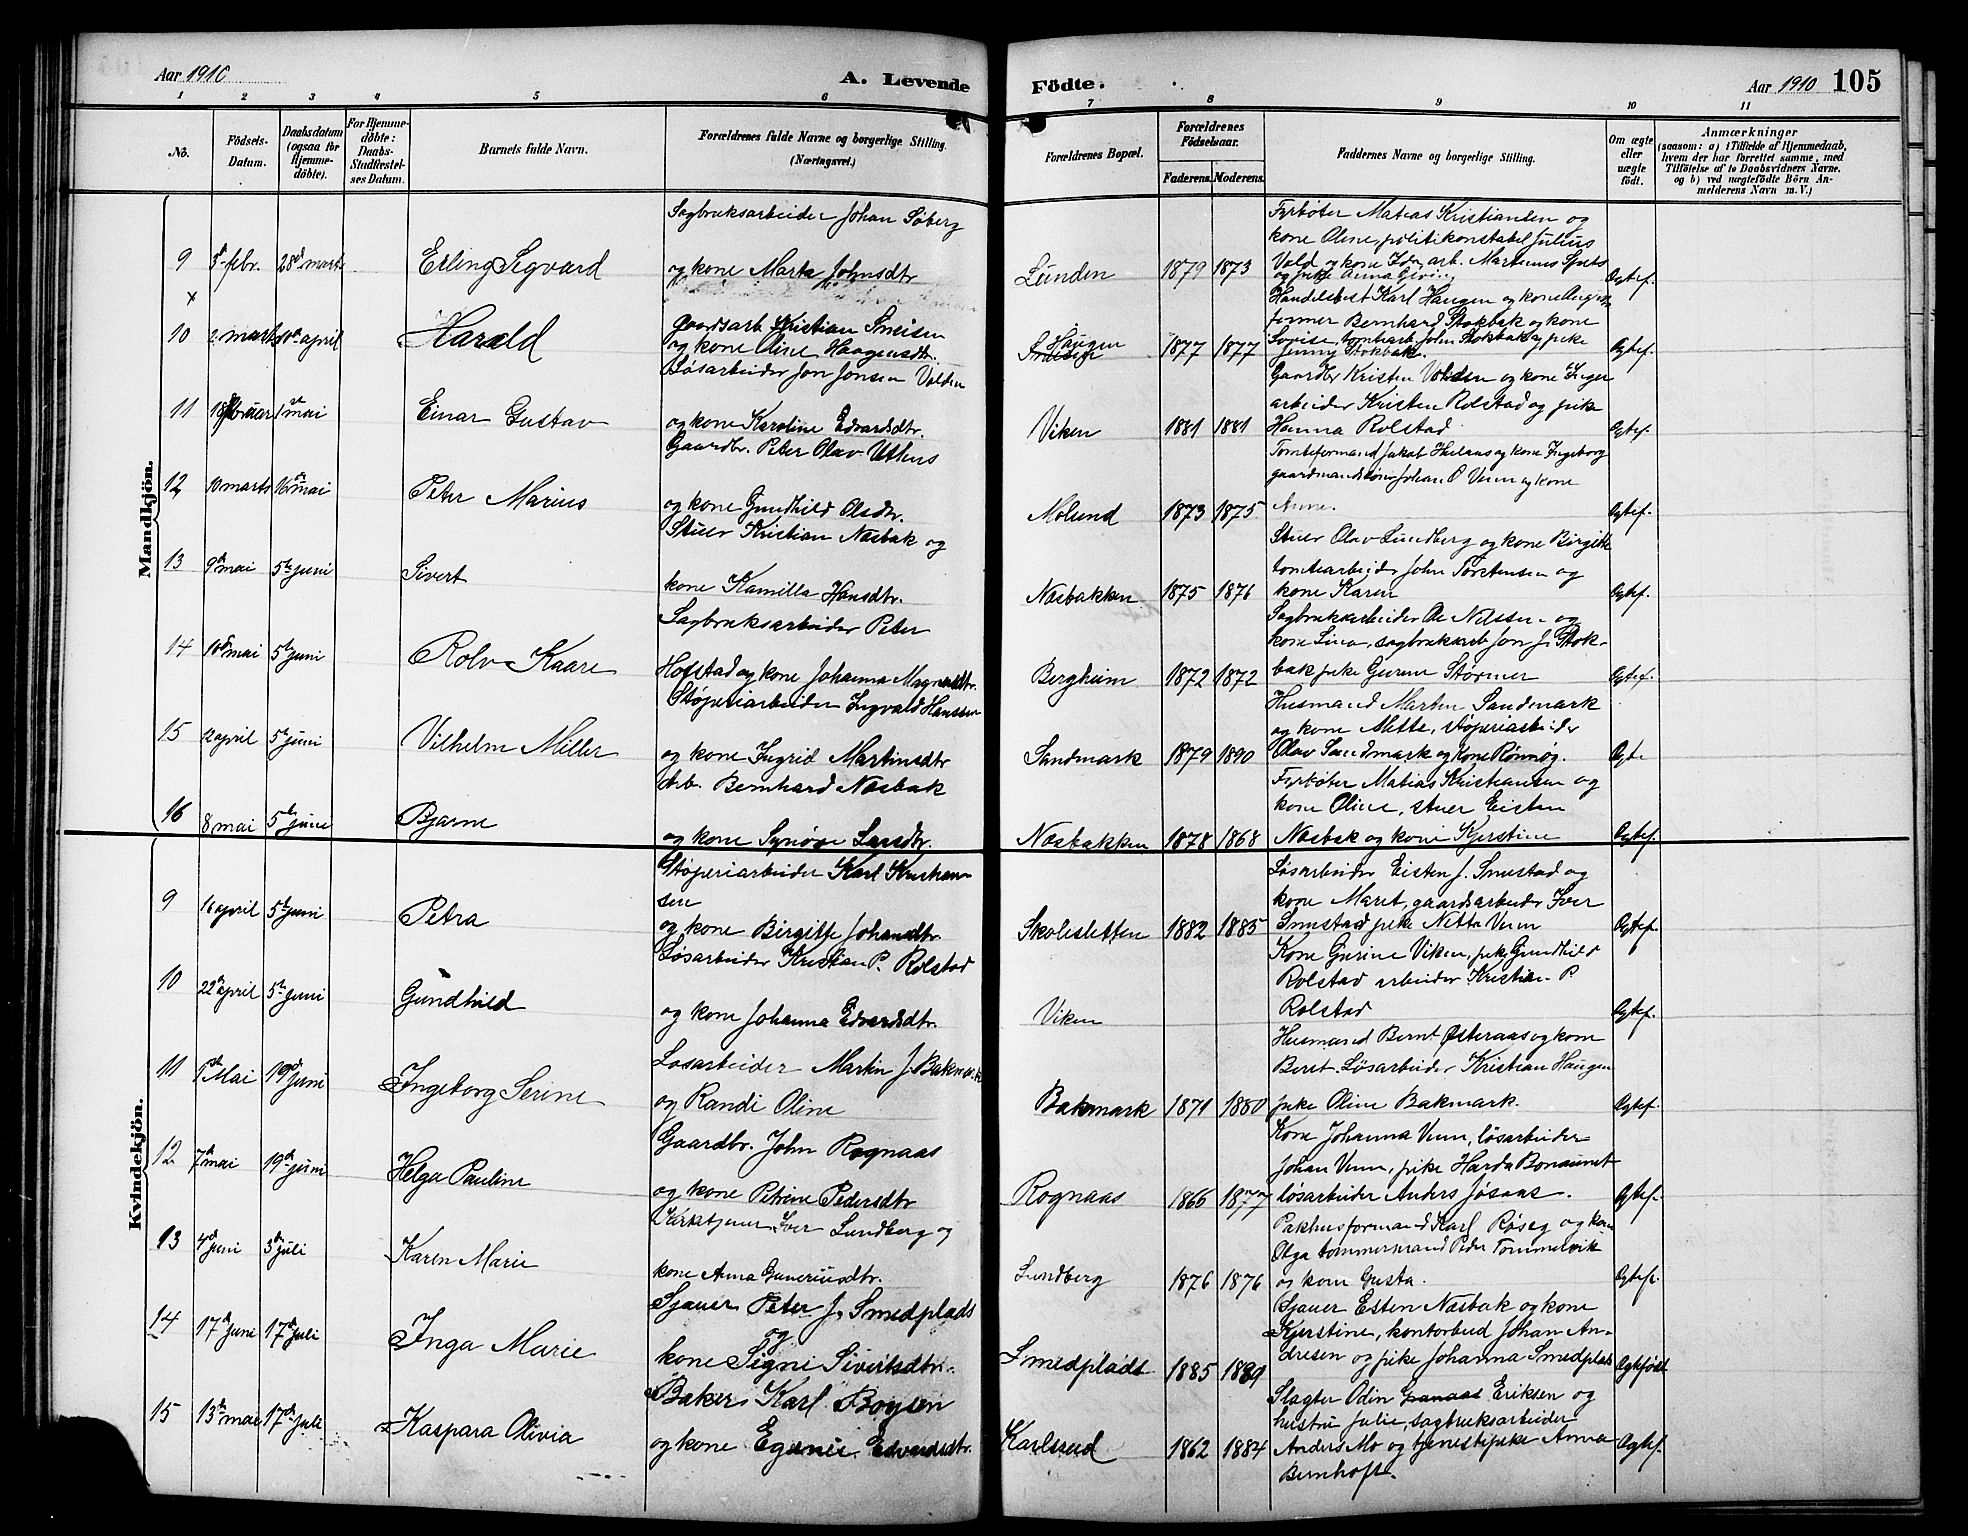 Aar 1910
A. Levende
Födte.
Aar 1910 105
1 2 3 4 5 6 7 8 9 10 11
No.
Födsels-
Datum.
Daabsdatum
(ogsaa for
Hjemme-
döbte).
For Hjemme-
döbte:
Daabs-
Stadfæstel-
ses Datum.
Barnets fulde Navn.
Forældrenes fulde Navne og borgerlige Stilling.
(Næringsvei.)
Forældrenes Bopæl.
Forældrenes
Födselsaar.
Faderens. Moderens.
Faddernes Navne og borgerlige Stilling.
Om ægte
eller
uægte
födt.
Anmærkninger
(saasom: a) i Tilfælde af Hjemmedaab,
hvem der har forrettet samme, med
Tilföielse af to Daabsvidners Navne.
og b) ved uægtefödte Börn An-
melderens Navn m. V.)
Mandkjön.
Sagbruksarbeider Johan Søberg
Fyrbøter Matias Kristiansen og
kone Oline, politikonstabel Julius
9 febr. 28d marts Erling Sigvard og kone Marta Johnsdtr Lunden 1879 1873 Vold og kone Ida, arb. Martinus
og pike Anna Ægtef.
Handelsbest Karl Haugen og kone
former Bernhard Stokbak og kone
10 2 marts 10de april Harald Gaardsarb Kristian Sneisen
og kone Oline Haagensdtr. Haugen
Sneisen 1877 1877 Lovise, tomtearb. John Stokbak, pike
Jenny Stokbak. Ægtef.
Løsarbeider Jon Jonsen Volden
Gaardbr Kristen Volden og kone Inger
11 18 februar 1st mai Einar Gustav og kone Karoline Edvardsdtr. Viken 1881 1881 arbeider Kristen Rolstad og pike
Hanna Rolstad Ægtef.
Gaardbr. Peter Olav Uthus
Tomteformand Jakob og kone Ingeborg
gaardmandssøn Johan O Venn og kone
12 10 marts 16de mai Peter Marius og kone Gundhild Olsdtr. Molund 1873 1875 Anne. Ægtef.
Stuer Kristian Næsbak og
Stuer Olav Lundberg og kone Birgitte
tomtearbeider John Torstensen og
13 9de mai 5te juni Sivert kone Kamilla Hansdtr. Næsbakken 1875 1876 kone Karen Ægtef.
Sagbruksarbeider Peter
Sagbruksarbeider Ole Nilssen og
kone Lina, sagbruksarb Jon J. Stok-
14 10de mai 5te juni Rolv Kaare Hofstad og kone Johanna Magnusdtr. Bergheim 1872 1872 bak, pike Gurine Størmer Ægtef.
Støperiarbeider Ingvald Hanssen
Husmand Marten Sandmark
og kone Mette, støperiarbeider
15 12 april 5te juni Vilhelm Miller og kone Ingrid Martinsdtr Sandmark 1879 1890 Olav Sandmark og kone Rønnøg. Ægte
Arb. Bernhard Næsbak
Fyrbøter Matias Kristiansen og
kone Oline, stuer Eisten
16 8 mai 5te juni Bjarne og kone Synøve Larsdtr. Næsbakken 1878 1868 Næsbak og kone Kjerstine Ægtef.
Kvindekjön.
Støperiarbeider Karl Kristian-
sen
Løsarbeider Eisten J. Smestad og
kone Maret, gaardsarbeider Iver
9 16 april 5te juni Petra og kone Birgitte Johansdtr. Skolesletten 1882 1885 Smestad pike Netta Venn Ægtef.
Løsarbeider Kristian P. Rolstad
Kone Gurine Viken, pike Gundhild
Rolstad arbeider Kristian P
10 22de april 5te juni Gundhild og kone Johanna Edvardsdtr. Viken Rolstad Ægtef.
Husmand Bernt Østeraas og kone
Beret. Løsarbeider Kristian Haugen
11 1ste Mai 19de juni Ingeborg Serine Løsarbeider Martin J. Bakmark
og Randi Oline Bakmark 1871 1880 pike Oline Bakmark. Ægtef.
Kone Johanna Venn, løsarbeider
Johan Venn, pike Harda Bonaunet
12 7de mai 19de juni Helga Pauline Gaardbr. John Rognaas
og kone Petrine Pedersdtr Rognaas 1866 1877 løsarbeider Anders Jøsaas. Ægtef.
Kirketjener Iver Lundberg og
Pakhusformand Karl Røseg og kone
Olga tømmermand Peder Tømmelvik
13 4de juni 3de juli Karen Marie kone Anna Guneriusdtr. Lundberg 1876 1876 og kone Gusta. Ægtef.
Sjauer Peter J. Smedplads
og
Sjauer Esten Næsbak og kone
Kjerstine, kontorbud Johan An-
14 17de juni 17de juli Inga Marie kone Signe Sivertsdtr. Smedplads 1885 1889 dresen og pike Johanna Smedplads Ægtefødt
Slagter Odin Granaas Eriksen og
hustru Julie, sagbruksarbeider
15 13de mai 17de juli Kaspara Olivia Baker Karl Boysen
og kone Egenie Edvardsdtr. Karlsrud 1862 1884 Anders Mo og tjenestepike Anna
Bernhoft. Ægtef.